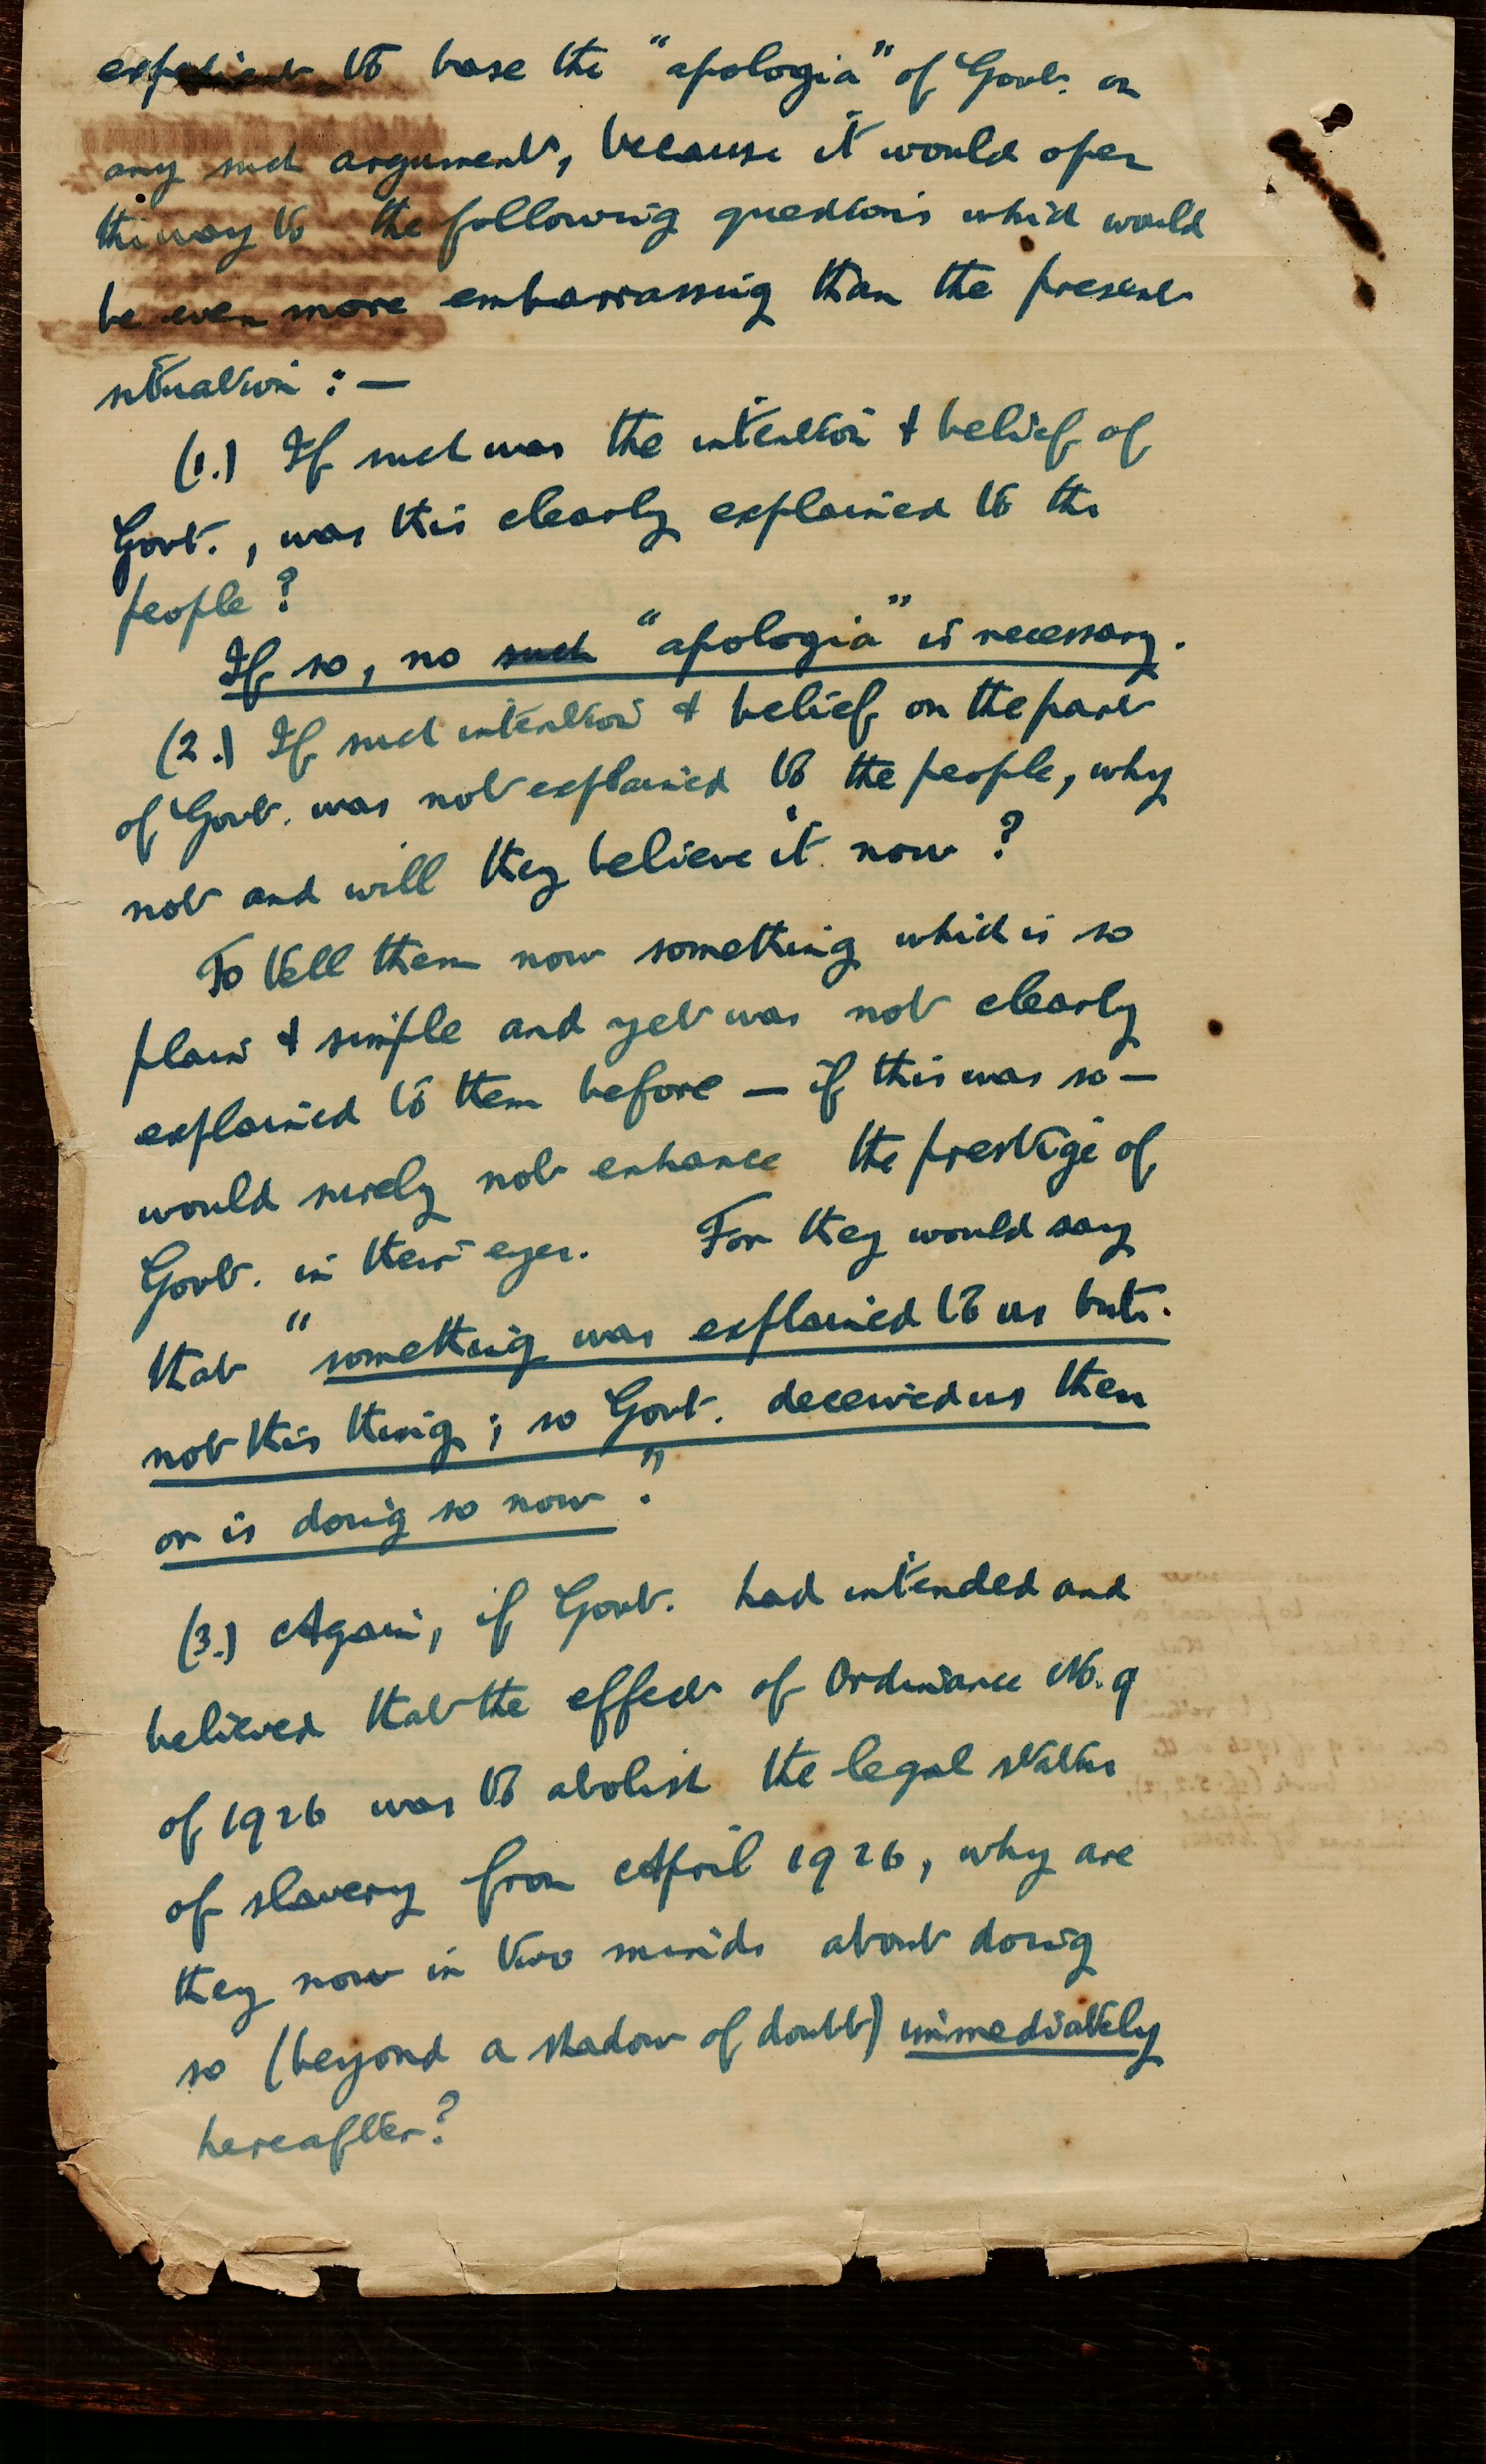 expedient to base the "apologia" of Govt. on
any such argument, because it would open
the way to the following questions which would
be even more embarrassing than the present
situation : —
(1.) If such was the intention & belief of
Govt., was this clearly explained to the
people ?
If so, no such "apologia" is necessary.
(2.) If such intention & belief on the part
of Govt. was not explained to the people, why
not and will they believe it now ?
To tell them now something which is so
plain & simple and yet was not clearly
explained to them before — if this was so —
would surely not enhance the prestige of
Govt. in their eyes. For they would say
that "something was explained to us but
not this thing ; so Govt. deceived us then
or is doing so now".
(3.) Again, if Govt. had intended and
believed that the effect of Ordinance No. 9
of 1926 was to abolish the legal status
of slavery from April 1926, why are
they now in two minds about doing
so (beyond a shadow of doubt) immediately
hereafter?